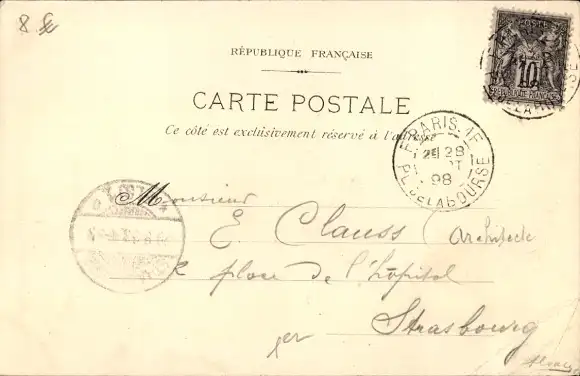 8
RÉPUBLIQUE FRANÇAISE
CARTE POSTALE
Ce côté est exclusivement réservé à l'adresse
POSTE
10
REPUBLIQUE FRANÇAISE
PARIS
28
98
PL. DE LA BOURSE
Monsieur
E. Clauss (Architecte
place de l'hôpital
Strasbourg